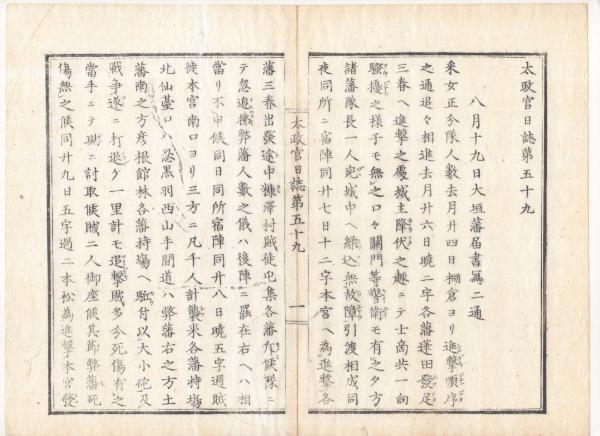 太政官日誌第五十九
八月十九日大垣藩届書寫二通
采女正分隊人數去月廿四日棚倉ヨリ進撃順序
之通追々相進去月廿六日曉二字各藩蓬田發足
三春ヘ進撃之處城主降伏之趣ニテ士商共一向
騒擾之様子モ無之口々關門等警衛モ有之夕方
諸藩隊長一人宛城中ヘ繰込無故障引渡相成同
夜同所ニ宿陣同廿七日十二字本宮ヘ為進撃各
太政官日誌第五十九
一
藩三春出發途中糠澤村賊徒屯集各藩斥候隊ニ
テ忽追拂弊藩人數之儀ハ後陣ニ罷在右ヘハ相
當リ不申候同日同所宿陣同廿八日曉五字過賊
徒本宮南口ヨリ三方ニ凡千人計襲来各藩持場
北仙臺口ハ忍黒羽西山手間道ハ弊藩右之方土
藩南之方彦根館林各藩持場ヘ馳付以大小砲及
戰爭遂ニ打退ケ一里計モ追撃賊多分死傷有之
當手ニテ現ニ討取候賊二人御座候其節弊藩死
傷無之候同廿九日五字過二本松為進撃本宮發